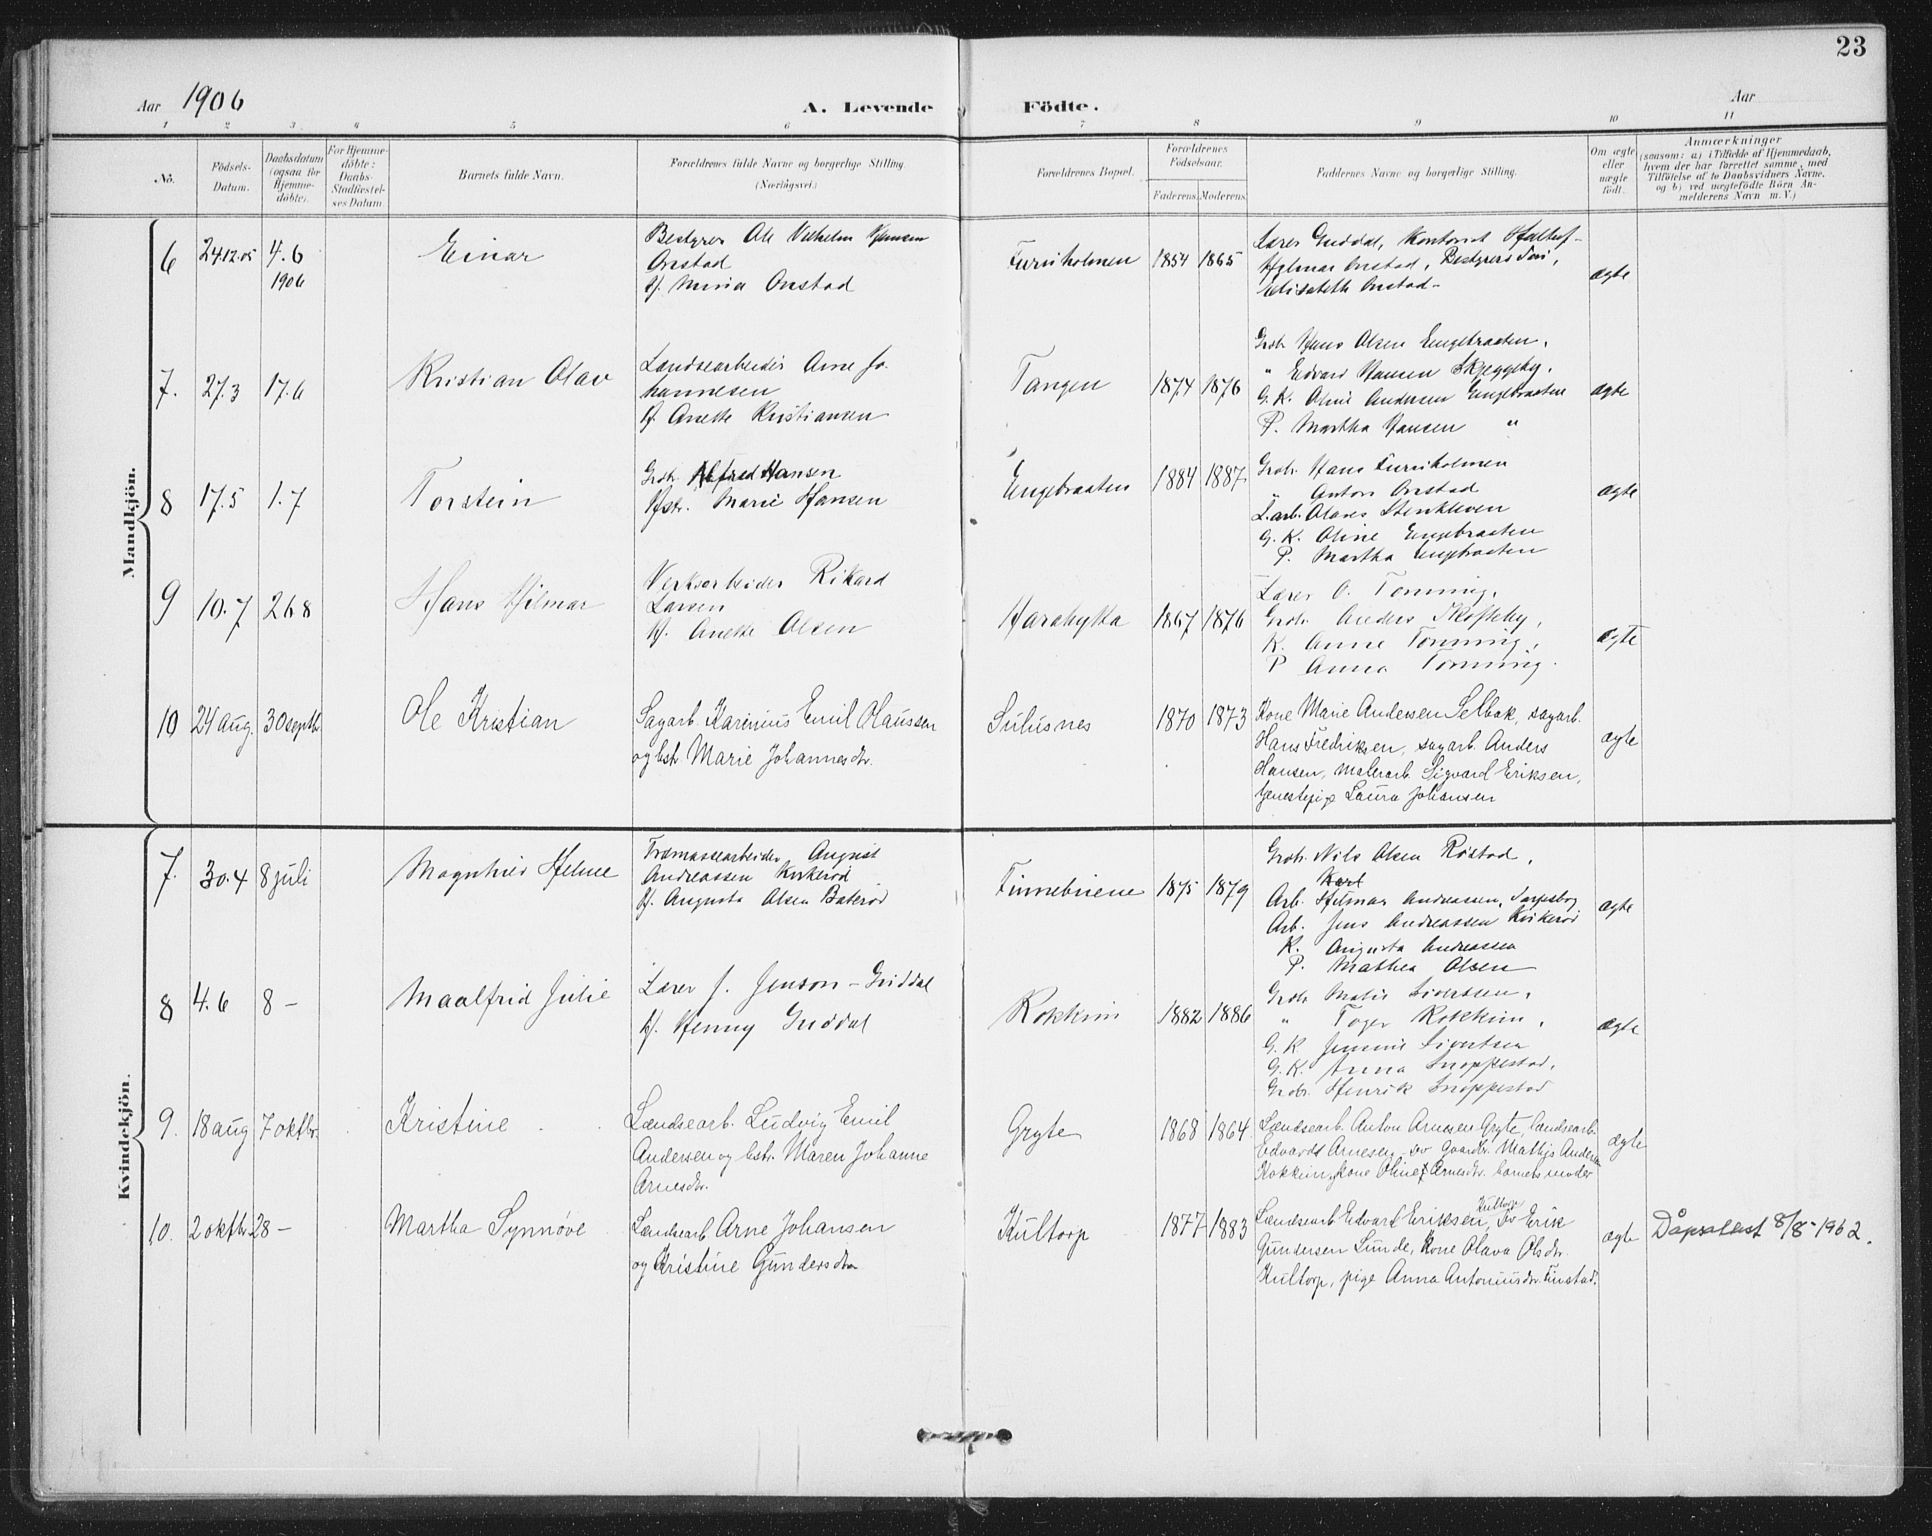 23
Aar 1906
A. Levende
Födte.
Aar
1 2 3 4 5 6 7 8 9 10 11
No.
Födsels-
Datum.
Daabsdatum
(ogsaa for
Hjemme-
döbte).
For Hjemme-
döbte:
Daabs-
Stadfæstel-
ses Datum
Barnets fulde Navn.
Forældrenes fulde Navne og borgerlige Stilling.
(Næringsvei.)
Forældrenes Bopæl.
Forældrenes
Födselsaar.
Faderens. Moderens.
Faddernes Navne og borgerlige Stilling.
Om ægte
eller
uægte
födt.
Anmærkninger
(saasom: a) i Tilfælde af Hjemmedaab,
hvem der har forrettet samme, med
Tilföielse af to Daabsvidners Navne.
og b) ved uægtefödte Börn An-
melderens Navn m. V.)
Mandkjön.
6 24.12.05 4.6
1906
Einar
Bestyrer Ole Vilhelm Hansen
Onstad
H. Onstad
Furuholmen 1854 1865
Lærer Guddal, Kontorist
Hjalmar Onstad, Bestyrer
Elisabeth Onstad
ægte
7. 27.3 17.6
Kristian Olav
Landsearbeider Arne Jo
hannesen
H. Anette Kristiansen
Tangen 1874 1876
Grbr. Hans Olsen Engebraaten,
" Edvard Hansen Skjeggeby,
G. K. Oline Andersen Engebraaten
P. Martha Hansen "
ægte
8 17.5 1.7
Torstein
Grbr. Alfred Hansen
Hstr. Marie Hansen
Engebraaten 1884 1887
Grbr. Hans Furuholmen
" Anton Onstad
L.arb. Olaves Stenkleven
G. K. Oline Engebraaten
P. Martha Engebraaten
ægte
9 10.7 26.8
Hans Hilmar
Verksarbeider Rikard
Larsen
H. Anette Olsen
Harehytta 1867 1876
Lærer O. Tonning,
Grbr. Anders Skofteby,
K. Anne Tonning,
P Anna Tonning.
ægte
10 24 aug. 30 septb.
Ole Kristian
Sagarb. Karinius Emil Olaussen
og hst. Marie Johannesdtr.
Sulusnes 1870 1873
Kone Marie Andersen Selbak, sagarb.
Hans Fredriksen, sagarb. Anders
Hansen, malerarb. Sigvard Eriksen,
tjenestepige Laura Johansen
ægte
Kvindekjön.
7. 30.4 8 juli
Magnhild Helene
Træmassearbeider August
Andreassen Kirkerød
H. Augusta Olsen Baterød
Finnebuene 1875 1879
Grbr. Nils Olsen Røstad,
Karl
Arb. Hilmar Andreassen, Sarpsborg
Arb. Jens Andreassen Kirkerød
K. Augusta Andreassen
P. Mathea Olsen
ægte
8 4.6 8 –
Maalfrid Julie
Lærer J. Jenson – Guddal
H. Henny Guddal
Rokkim 1882 1886
Grbr. Sivertsen,
" Toger Rokkim,
G. K Jennie Sivertsen
G. K. Anna Snoppestad,
Grbr. Henrik Snoppestad
ægte
9. 18 aug 7 oktbr.
Kristine
Lændsearb. Ludvig Emil
Andersen og hst. Maren Johanne
Arnesdtr.
Gryte 1868 1864
Lændsearb. Anton Arnesen Gryte, Lændsearb.
Edvardt Arnesen, Gaardbr. Mathis Andersen
Rokkim, kone Oline Arnesdtr. barnets moder
ægte
10. 2 oktbr. 28 –
Martha Synnøve
Lændsearb Arne Johansen
og Kristine Gundersdtr
Kultorp 1877 1883
Kultorp
Lændsearb Edvart Eriksen, Erik
Gundersen Lunde, kone Olava Olsdtr.
Kultorp, pige Anna Antoniusdtr. Finstad.
ægte
Dåpsattest 8/8-1962.